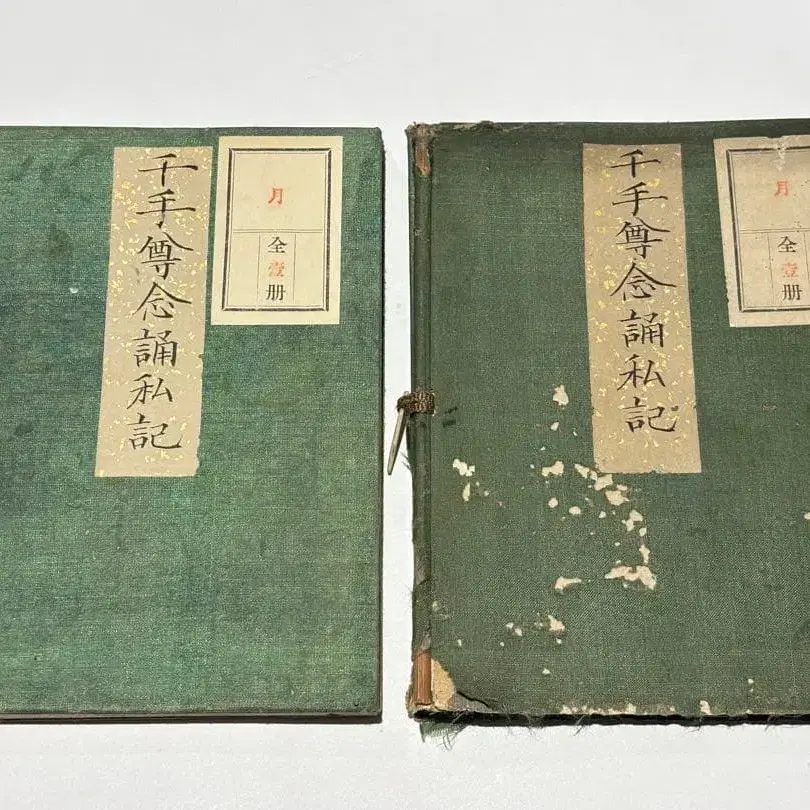 千手尊念誦私記
月
全壹册
千手尊念誦私記
月
全壹册